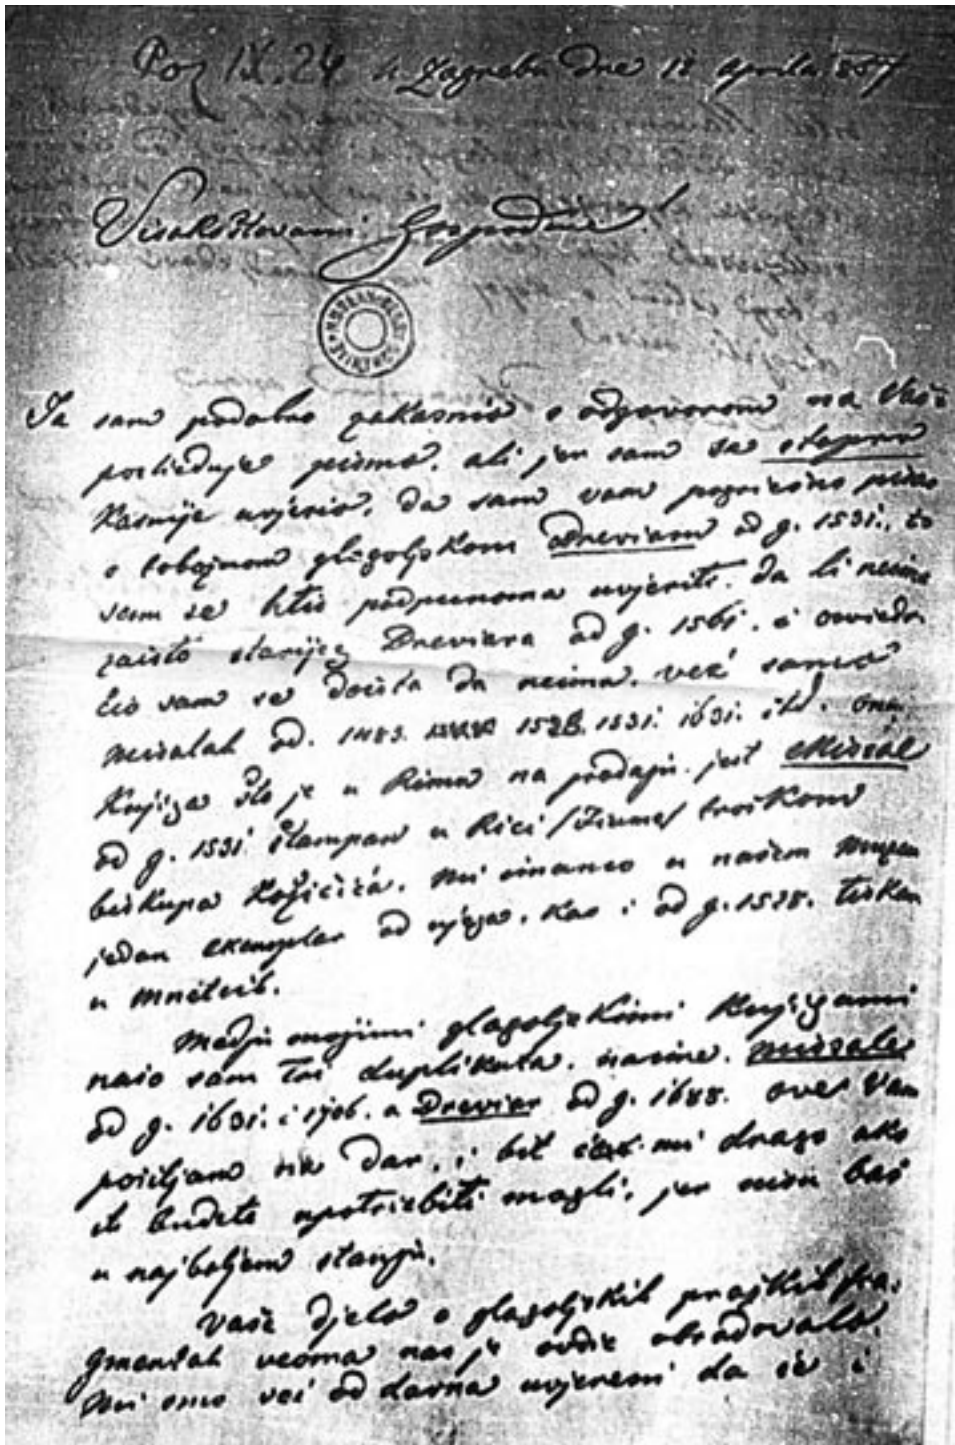 Poz IX. 24 u Zagrebu dne 18 Aprila 857
Visokoštovani Gospodine!
Ja sam podobno zakasnio s odgovorom na Vaše
posliednje pismo, ali jer sam se
kasnije uvjerio, da sam vam pogriešno pisao
o tobožnom glagoljskom Breviaru od g. 1531., to
sam se htio podpunoma uvjeriti, da li neima
zaista starijeg Breviara od g. 1561. i osviedo
čio sam se doista da neima, već samo
Missalah od. 1483. 1528. 1531. 1631. itd. ona
Knjiga što je u Rimu na prodaju jest Missal
od g. 1531 štampan u Rici /Fiume/ troškom
biskupa Kožičića. Mi imamo u našem Muzeu
jedan exemplar od njega, kao i od g. 1528. tiskan
u Mnetcih.
Medju mojimi glagoljskimi knjigami
našo sam tri duplikata, naime, Missale
od g. 1631. i 1706. a Breviar od g. 1688. ove Vam
pošiljam na dar, i bit će mi drago ako
ih budete upotriebiti mogli, jer nisu baš
u najboljem stanju.
Vaše djelo o glagoljskih pražkih fra-
gmentah veoma nas je ovdie obradovalo.
Mi smo već od davna uvjereni da je i